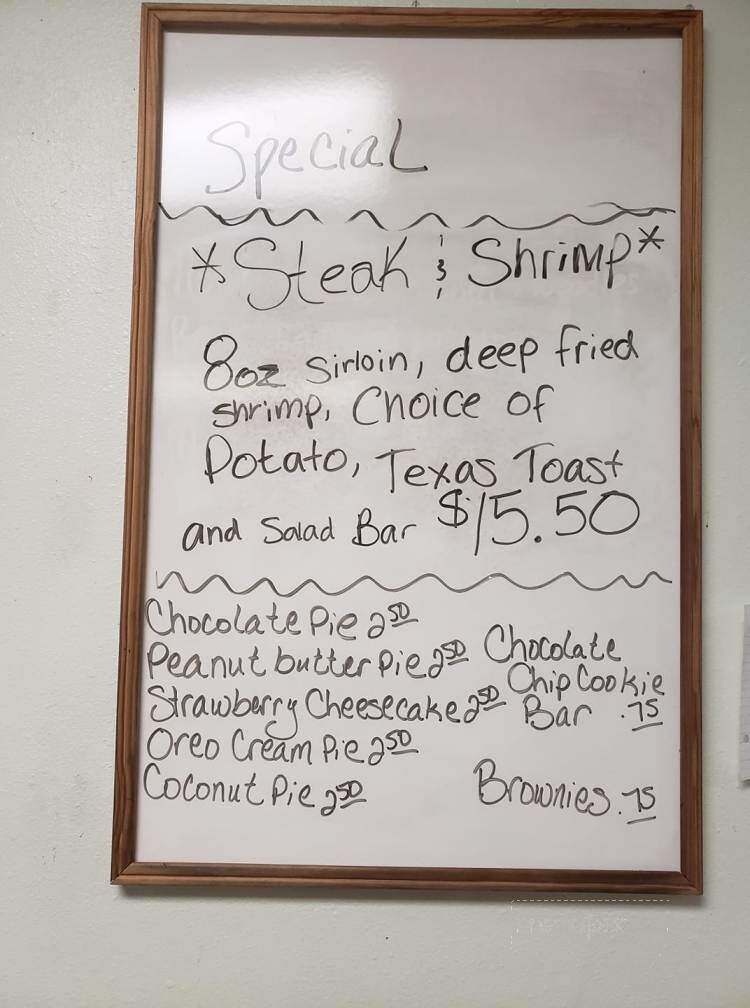 Special
*Steak & Shrimp*
8oz sirloin, deep fried
shrimp, Choice of
Potato, Texas Toast
and Salad Bar $15.50
Chocolate Pie 2.50
Peanut butter Pie 2.50
Strawberry Cheesecake 2.50
Oreo Cream Pie 2.50
Coconut Pie 2.50
Chocolate
Chip Cookie
Bar .75
Brownies .75